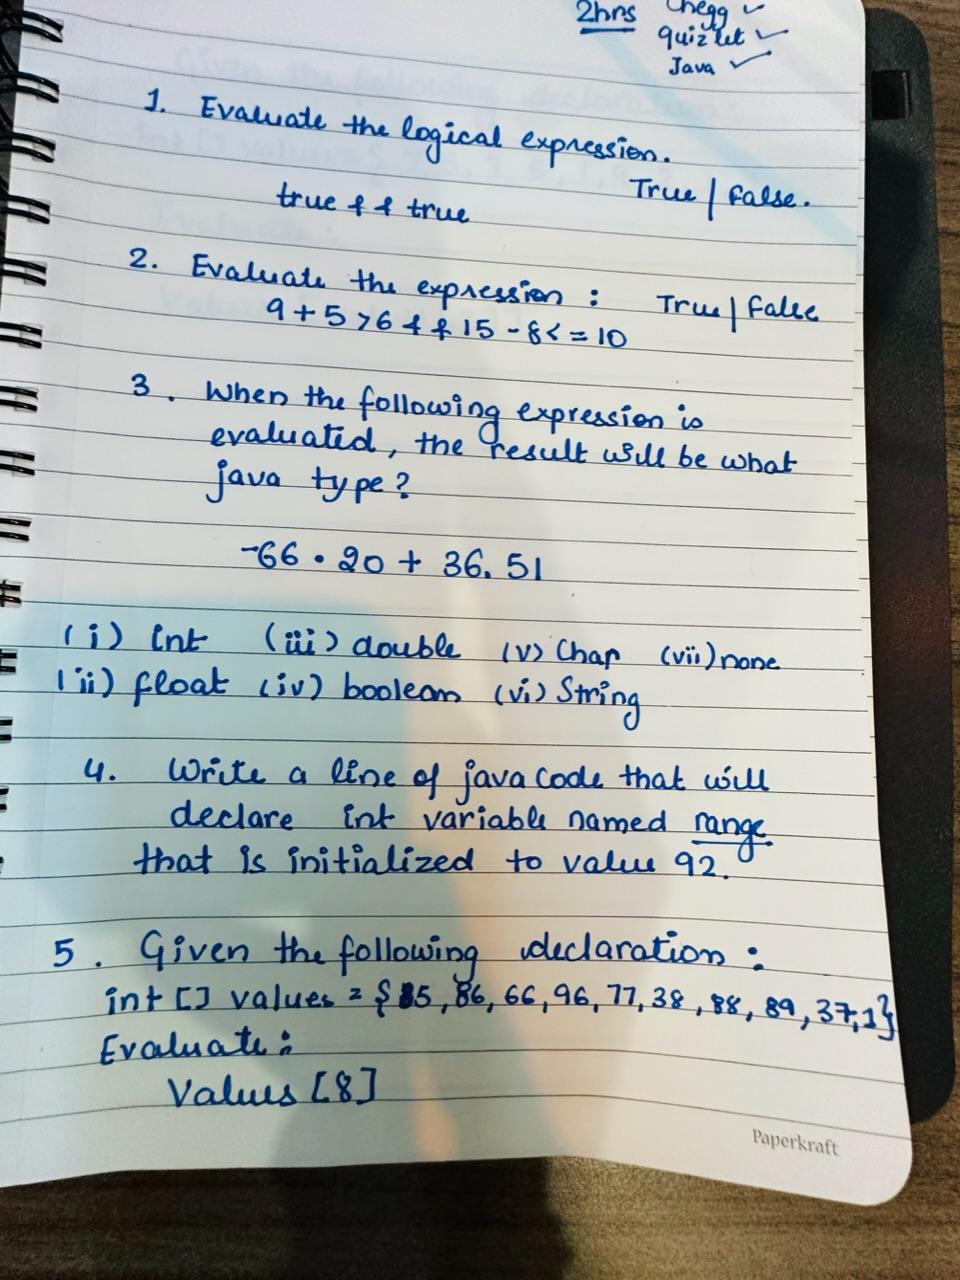 2hrs Chegg ✓
quizlet ✓
Java ✓
1. Evaluate the logical expression.
True | False.
true && true
2. Evaluate the expression : True | False
9 + 5 > 6 && 15 - 8 < = 10
3. When the following expression is
evaluated, the result will be what
java type?
-66 . 20 + 36. 51
(i) int (iii) double (v) Char (vii) none
(ii) float (iv) boolean (vi) String
4. Write a line of java code that will
declare int variable named range
that is initialized to value 92.
5. Given the following declaration :
int [] values = { 85, 86, 66, 96, 77, 38, 88, 89, 37, 1}
Evaluate :
Values [8]
Paperkraft